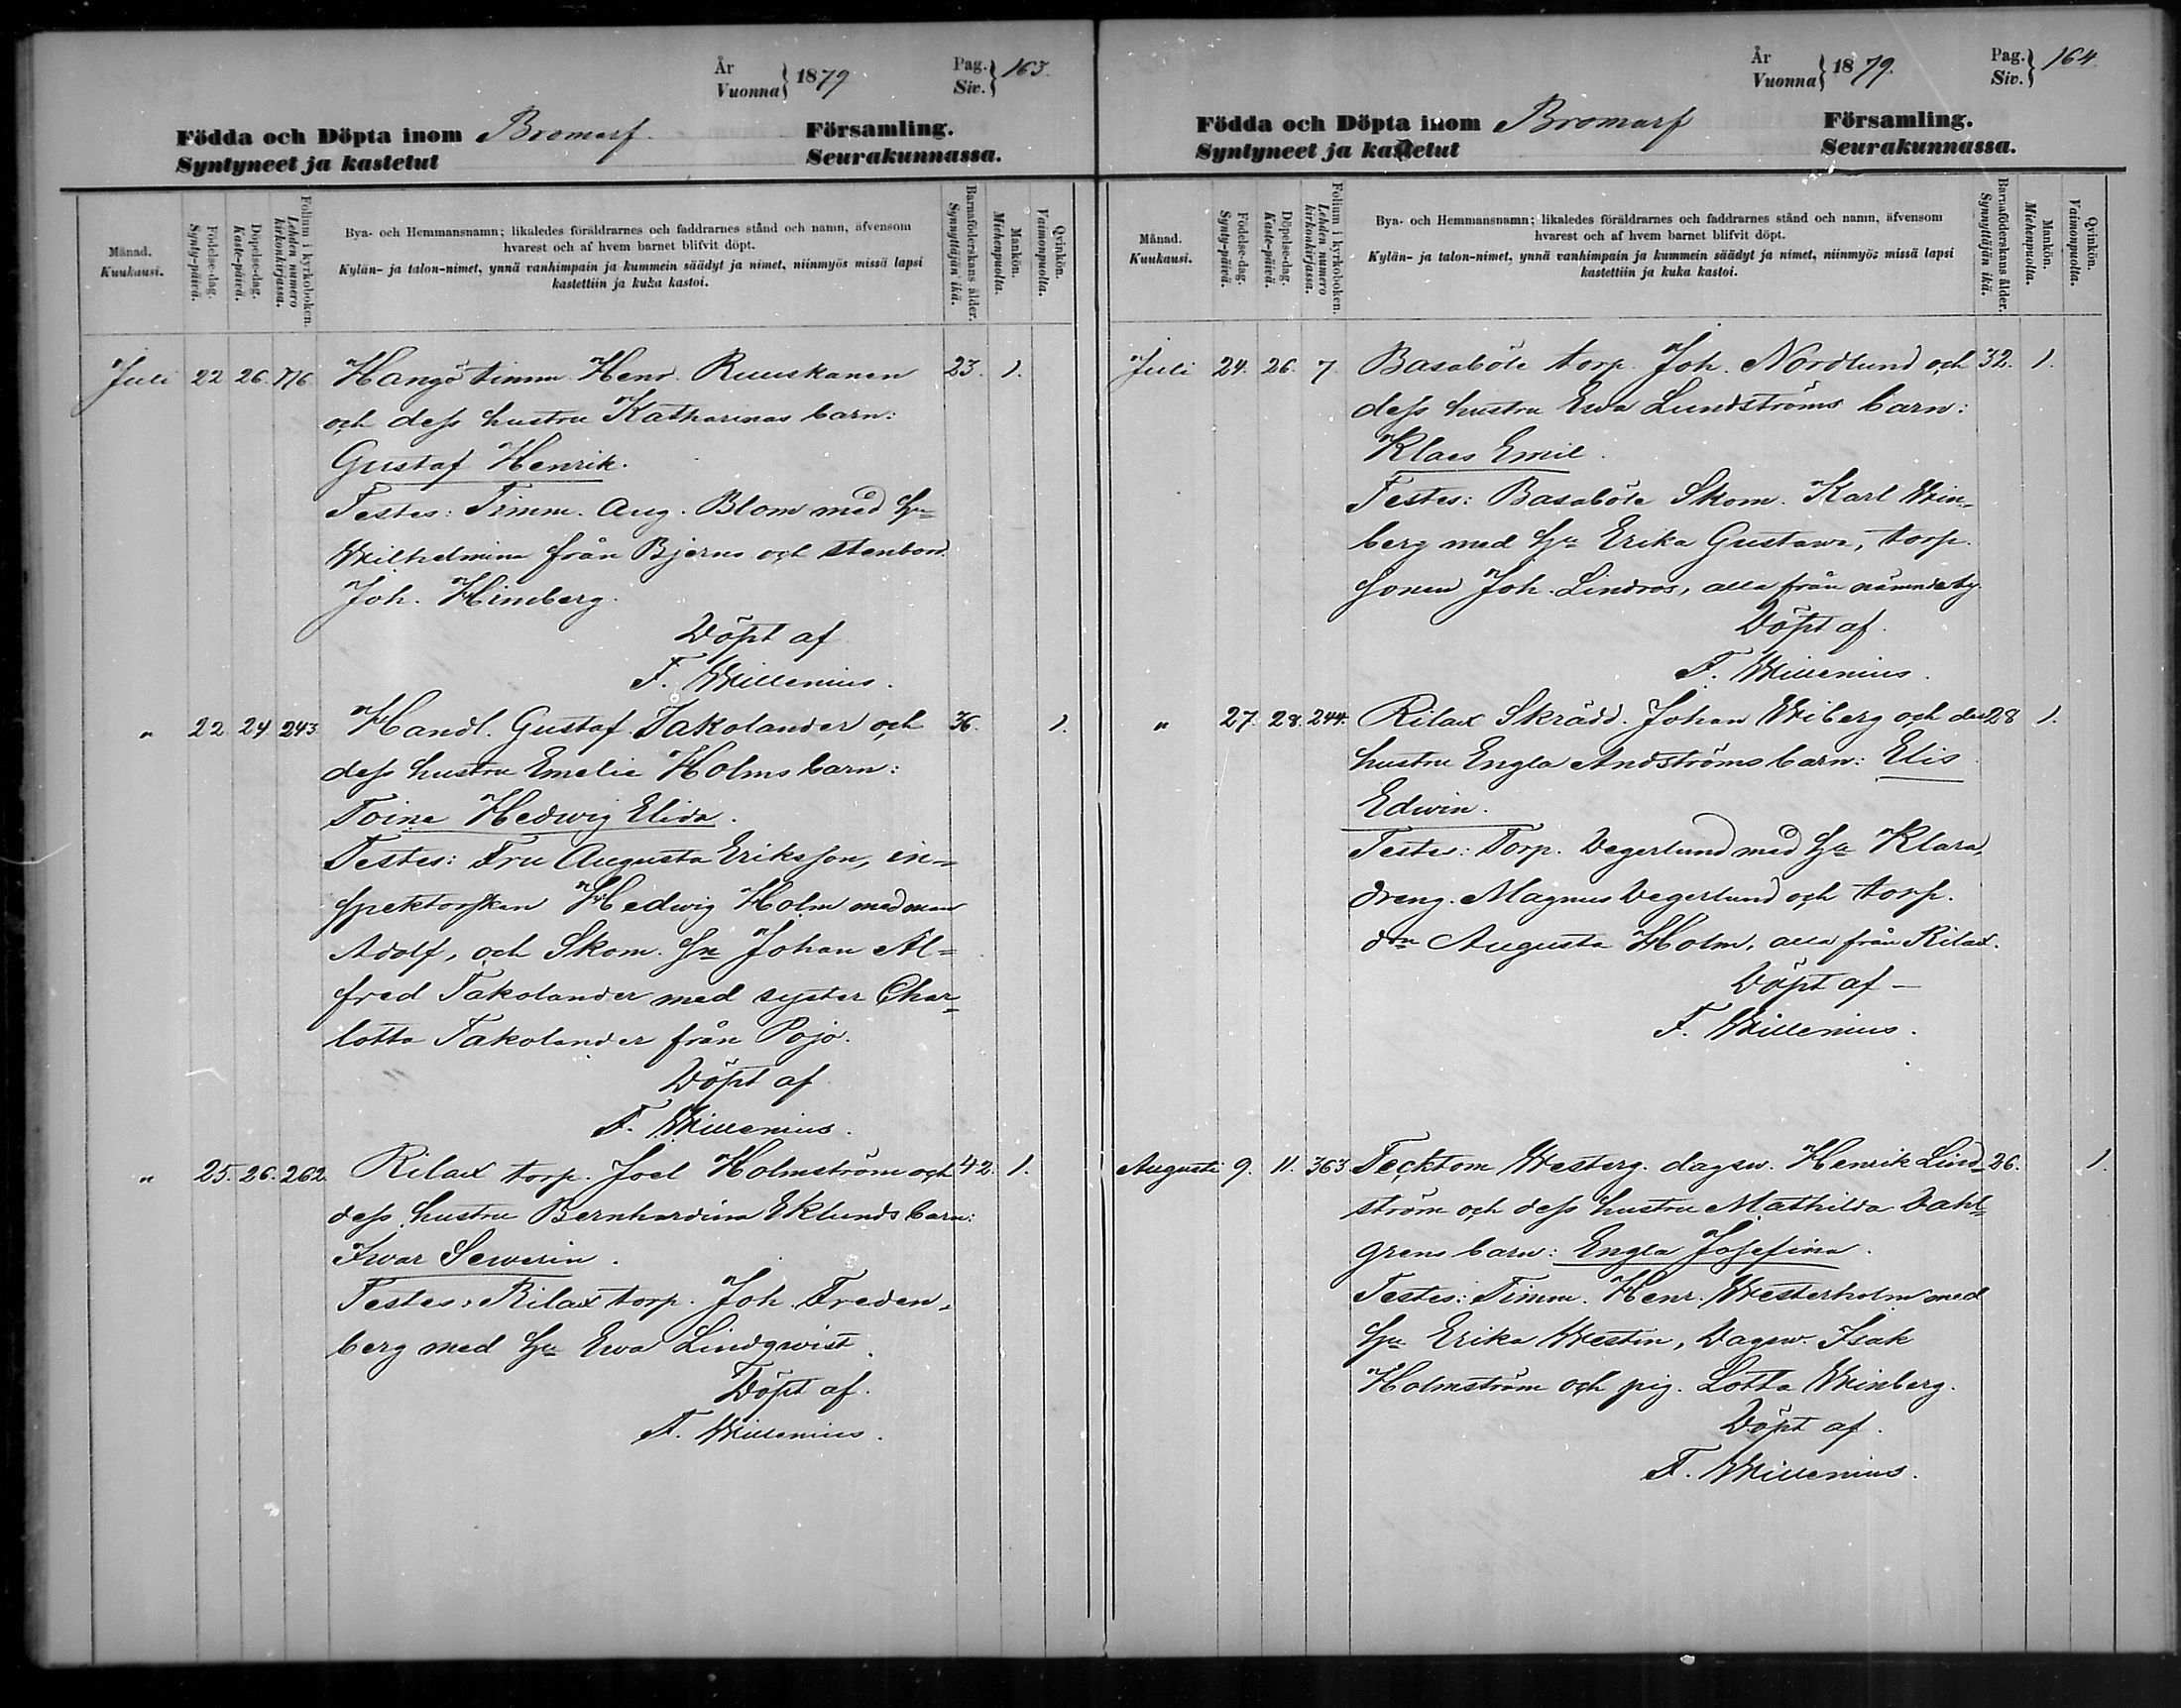 År
Vuonna } 1879
Pag.
Siv. } 163.
Födda och Döpta inom Bromarf Församling.
Syntyneet ja kastetut Seurakunnassa.
Månad.
Kuukausi.
Födelse-dag.
Synty-päivä.
Döpelse-dag.
Kaste-päivä.
Folium i kyrkoboken.
Lehden numero
kirkonkirjassa.
Bya- och Hemmansnamn; likaledes föräldrarnes och faddrarnes stånd och namn, äfvensom
hvarest och af hvem barnet blifvit döpt.
Kylän- ja talon-nimet, ynnä vanhimpain ja kummein säädyt ja nimet, niinmyös missä lapsi
kastettiin ja kuka kastoi.
Barnaföderskans ålder.
Synnyttäjän ikä.
Mankön.
Miehenpuolta.
Qvinkön.
Vaimonpuolta.
Juli 22 26. Hangö timm. Henr. Ruuskanen 23. 1.
och dess hustru Katharinas barn:
Gustaf Henrik.
Testes: Timm. Aug. Blom med Hu
Wilhelmina från Bjerno och
Joh. Himberg.
Döpt af
F. Willenius.
" 22 24 243 Handl. Gustaf Takolander och 36. 1.
dess hustru Emelie Holms barn:
Toine Hedwig Elida.
Testes: Fru Augusta Eriksson, in-
spektorskan Hedwig Holm med man
Adolf, och Skom. Johan Al=
fred Takolander med syster Char=
lotta Takolander från Pojo.
Döpt af
F. Willenius.
" 25. 26. 262. Rilax torp. Joel Holmström och 42. 1.
dess hustru Bernhardina Eklunds barn:
Iwar Sewerin.
Testes: Rilax torp. Joh. Freden-
berg med Hu Ewa Lindqwist.
Döpt af.
F. Willenius.
År
Vuonna } 1879.
Pag.
Siv. } 164
Födda och Döpta inom Bromarf Församling.
Syntyneet ja kastetut Seurakunnassa.
Månad.
Kuukausi.
Födelse-dag.
Synty-päivä.
Döpelse-dag.
Kaste-päivä.
Folium i kyrkoboken.
Lehden numero
kirkonkirjassa.
Bya- och Hemmansnamn; likaledes föräldrarnes och faddrarnes stånd och namn, äfvensom
hvarest och af hvem barnet blifvit döpt.
Kylän- ja talon-nimet, ynnä vanhimpain ja kummein säädyt ja nimet, niinmyös missä lapsi
kastettiin ja kuka kastoi.
Barnaföderskans ålder.
Synnyttäjän ikä.
Mankön.
Miehenpuolta.
Qvinkön.
Vaimonpuolta.
Juli 24. 26. 7 Basaböle torp. Joh. Nordlund och 32. 1.
dess hustru Ewa Lundströms barn:
Klaes Emil.
Testes: Basaböle Skom. Karl Win-
berg med Hu Erika Gustawa, torp.
sonen Joh. Lindros, alla från nämnde by
Döpt af.
F. Willenius.
" 27. 28. 244. Rilax Skrädd. Johan Wiberg och dess 28 1.
hustru Engla Andströms barn: Elis
Edwin.
Testes: Torp. Degerlund med Hu Klara,
dreng. Magnus Degerlund och torp.
dtn Augusta Holm, alla från Rilax.
Döpt af -
F. Willenius.
Augusti 9. 11. 363 Tecktom Westerg. dagsw. Henrik Lind- 26. 1.
ström och dess hustru Mathilda Dahl=
grens barn: Engla Josefina.
Testes: Timm. Henr. Westerholm med
Hu Erika Westin, Dagsw. Isak
Holmström och pig. Lotta Winberg.
Döpt af.
F. Willenius.